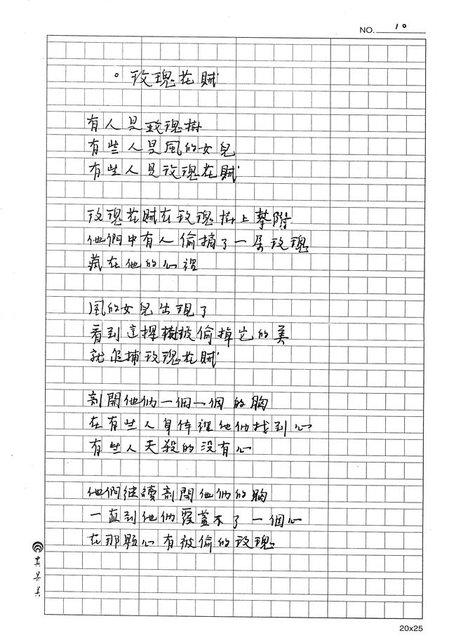 NO. 10
。玫瑰花賊
有人是玫瑰樹
有些人是風的女兒
有些人是玫瑰花賊
玫瑰花賊在玫瑰樹上攀附
他們中有人偷摘了一朵玫瑰
藏在他的心裡
風的女兒出現了
看到這棵樹被偷掉它的美
就追捕玫瑰花賊
剖開他們一個一個的胸
在有些人身体裡他們找到心
有些人天殺的沒有心
他們繼續剖開他們的胸
一直到他們覆蓋不了一個心
在那顆心有被偷的玫瑰
20x25